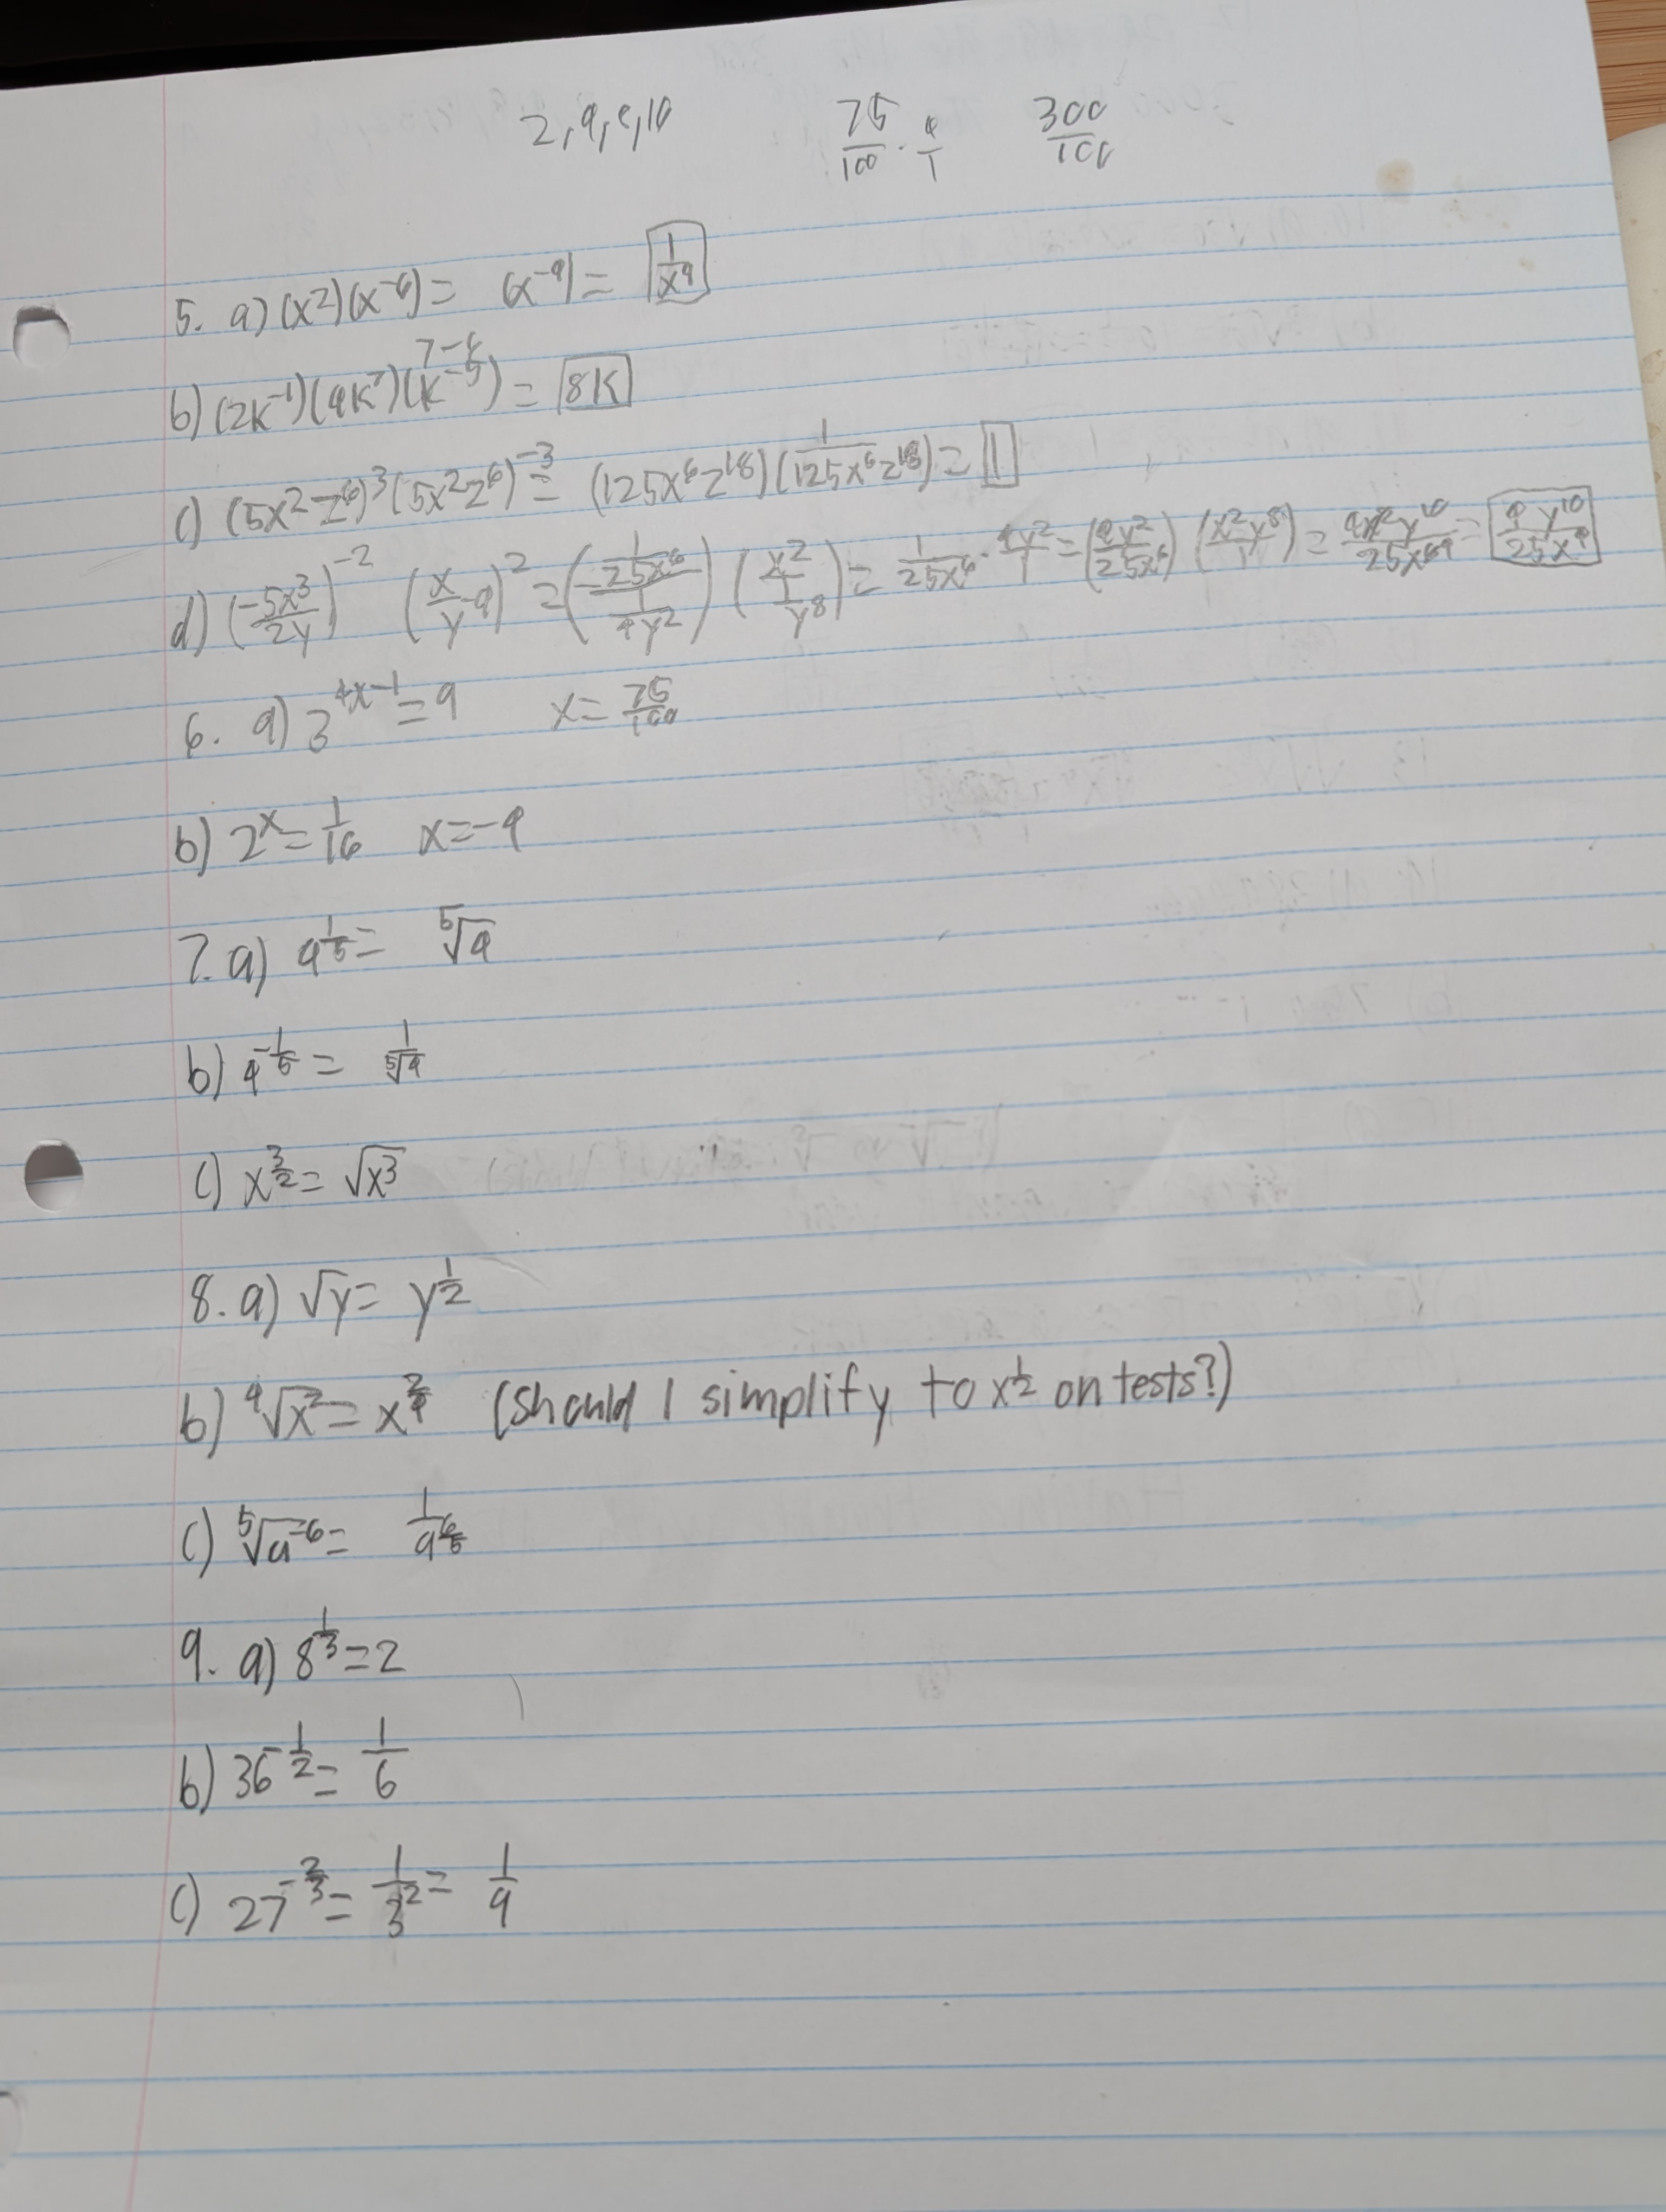 2, 4, 6, 10    75/100 · 4/1    300/100
5. a) (x²)(x⁻⁶) = (x⁻⁴) = 1/x⁴
7-6
b) (2k⁻¹)(4k⁷)(k⁻⁵) = 8k
c) (5x²z⁶)³(5x²z⁶)⁻³ = (125x⁶z¹⁸)(1/125x⁶z¹⁸) = 1
d) (-5x³/2y)⁻² (x/y⁻⁴)² = (1/25x⁶ / 1/4y²) (x²/ 1/y⁸) = 1/25x⁶ · 4y²/1 = (4y²/25x⁶) (x²y⁸/1) = 4x²y¹⁰/25x⁶ = 4y¹⁰/25x⁴
6. a) 3^(4x-1) = 9    x = 75/100
b) 2ˣ = 1/16    x = -4
7. a) 4^(1/5) = ⁵√4
b) 4^(-1/5) = 1/⁵√4
c) x^(3/2) = √x³
8. a) √y = y^(1/2)
b) ⁴√x² = x^(2/4) (should I simplify to x^(1/2) on tests?)
c) ⁵√a⁻⁶ = 1/a^(6/5)
9. a) 8^(1/3) = 2
b) 36^(-1/2) = 1/6
c) 27^(-2/3) = 1/3² = 1/9